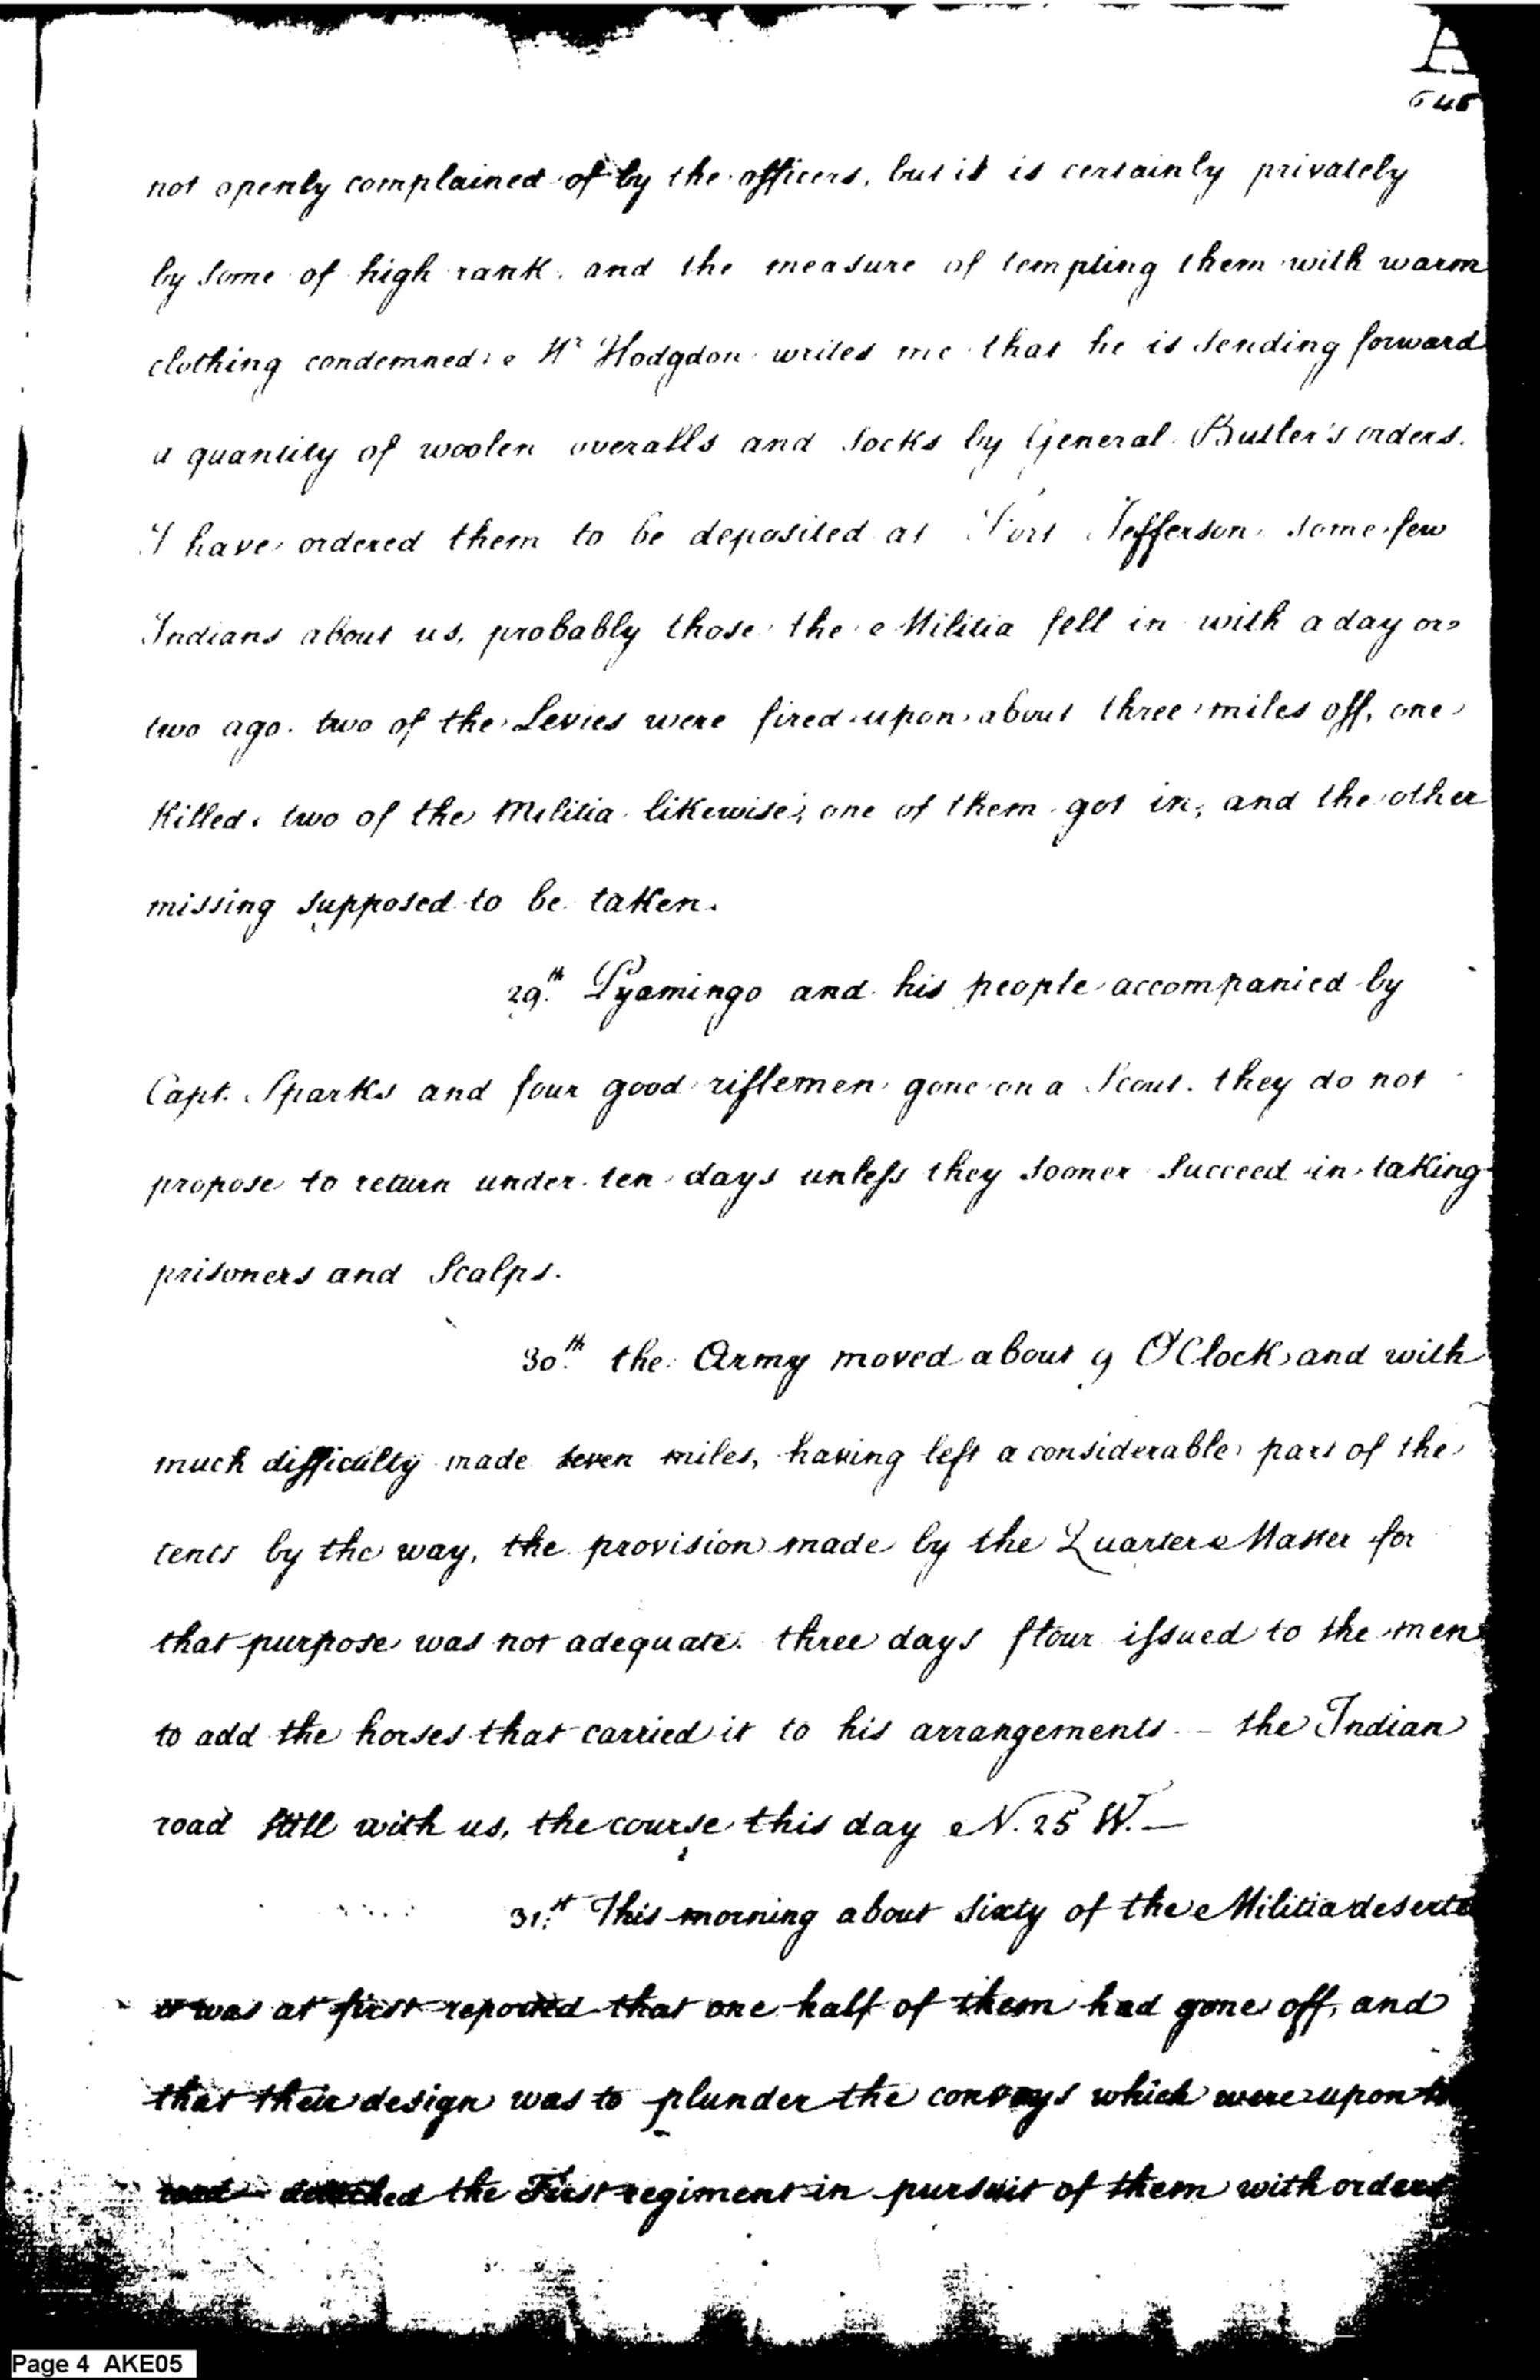 A
645
not openly complained of by the officers, but it is certainly privately
by some of high rank. and the measure of tempting them with warm
clothing condemned. Mr Hodgdon writes me that he is sending forward
a quantity of woolen overalls and socks by General Butler's orders.
I have ordered them to be deposited at Fort Jefferson. some few
Indians about us, probably those the Militia fell in with a day or
two ago. two of the Levies were fired upon about three miles off, one
killed. two of the Militia likewise; one of them got in, and the other
missing supposed to be taken.
29th. Pyamingo and his people accompanied by
Capt. Sparks and four good riflemen gone on a Scout. they do not
propose to return under ten days unless they sooner succeed in taking
prisoners and Scalps.
30th. the Army moved about 9 O'Clock and with
much difficulty made seven miles, having left a considerable part of the
tents by the way, the provision made by the Quarter Master for
that purpose was not adequate. three days flour issued to the men
to add the horses that carried it to his arrangements. - the Indian
road still with us, the course this day N. 25 W. —
31.st This morning about sixty of the Militia deserte
it was at first reported that one half of them had gone off, and
that their design was to plunder the convoys which were upon
road - detached the First regiment in pursuit of them with orders
Page 4 AKE05